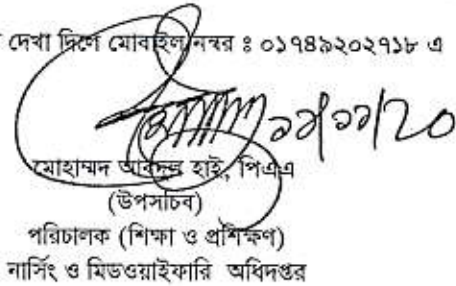 দেখা দিলে মোবাইল নম্বর ঃ ০১৭৪৯২০২৭১৮ এ
১১/২০
মোহাম্মদ আবদুল হাই, পিএএ
(উপসচিব)
পরিচালক (শিক্ষা ও প্রশিক্ষণ)
নার্সিং ও মিডওয়াইফারি অধিদপ্তর